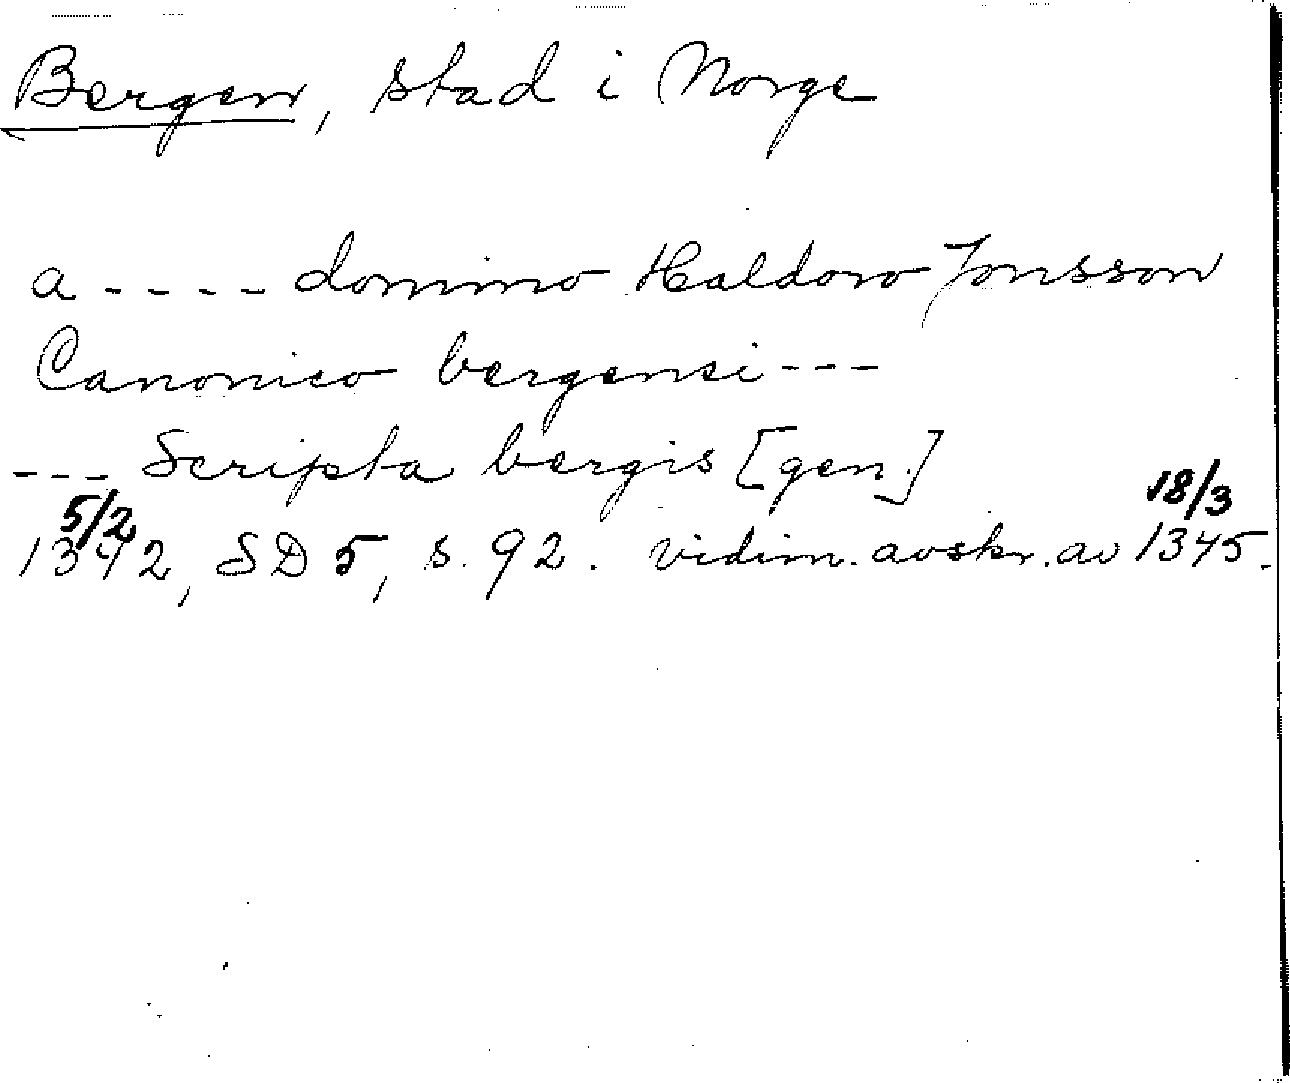 Bergen, stad i Norge
a ---- domino Haldoro Jonsson
Canonico bergensi ---
--- Scripta bergis [gen.]
5/2 18/3
1342, SD 5, s. 92. vidim. avskr. av 1345.